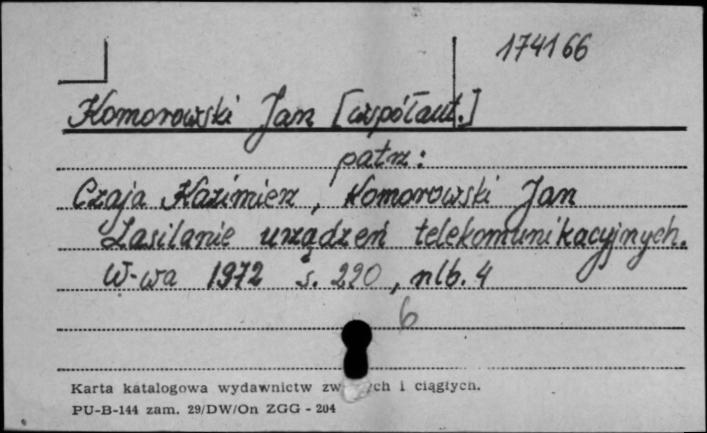 174166
Komorowski Jan [współaut.]
patrz:
Czaja Kazimierz, Komorowski Jan
Zasilanie urządzeń telekomunikacyjnych.
W-wa 1972 s. 290, nlb. 4
6
Karta katalogowa wydawnictw zw ych i ciągłych.
PU-B-144 zam. 29/DW/On ZGG - 204